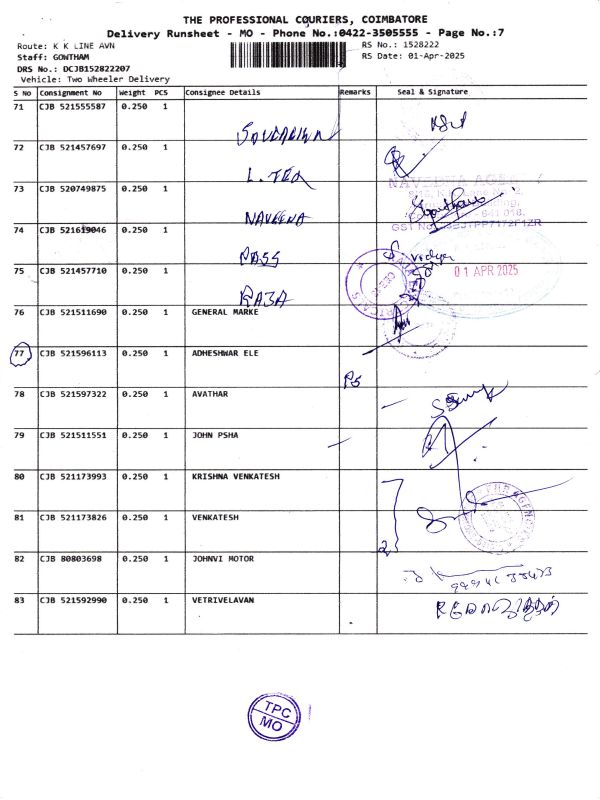 THE PROFESSIONAL COURIERS, COIMBATORE
Delivery Runsheet - MO - Phone No.:0422-3505555 - Page No.:7
Route: K K LINE AVN
RS No.: 1528222
Staff: GOWTHAM
RS Date: 01-Apr-2025
DRS No.: DCJB152822207
Vehicle: Two Wheeler Delivery
S No Consignment No Weight PCS Consignee Details Remarks Seal & Signature
71 CJB 521555587 0.250 1
72 CJB 521457697 0.250 1 L. TEX
73 CJB 520749875 0.250 1 NAVEENA
NAVEENA AGEN
74 CJB 521619046 0.250 1 PASS
75 CJB 521457710 0.250 1 RAJA
01 APR 2025
76 CJB 521511690 0.250 1 GENERAL MARKE
77 CJB 521596113 0.250 1 ADHESHWAR ELE
78 CJB 521597322 0.250 1 AVATHAR
79 CJB 521511551 0.250 1 JOHN PSHA
80 CJB 521173993 0.250 1 KRISHNA VENKATESH
81 CJB 521173826 0.250 1 VENKATESH
2
82 CJB 80803698 0.250 1 JOHNVI MOTOR
83 CJB 521592990 0.250 1 VETRIVELAVAN
TPC
MO